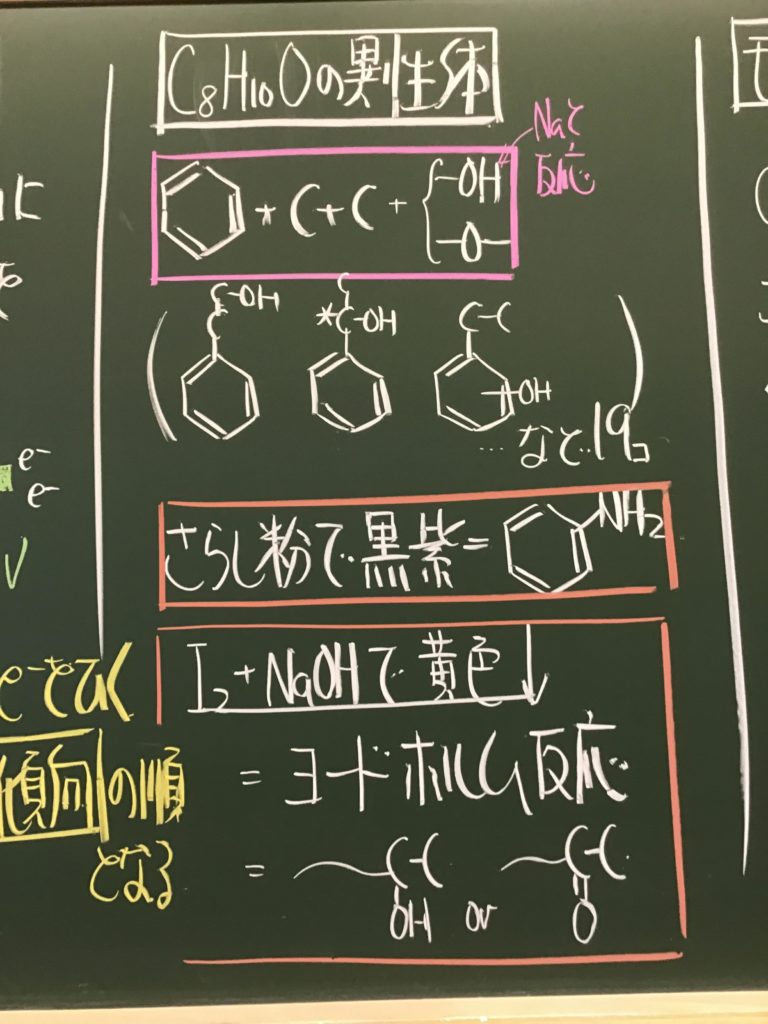 C8H10Oの異性体
Naと
反応
+ C + C + { -OH
-O-
C-OH
C
C
*C-OH
C-C
OH
…など19コ
さらし粉で黒紫=
NH2
I2+NaOHで黄色↓
=ヨードホルム反応
= C-C
OH
or
C-C
O
e-
e-
e-をひく
傾向の順
となる
に